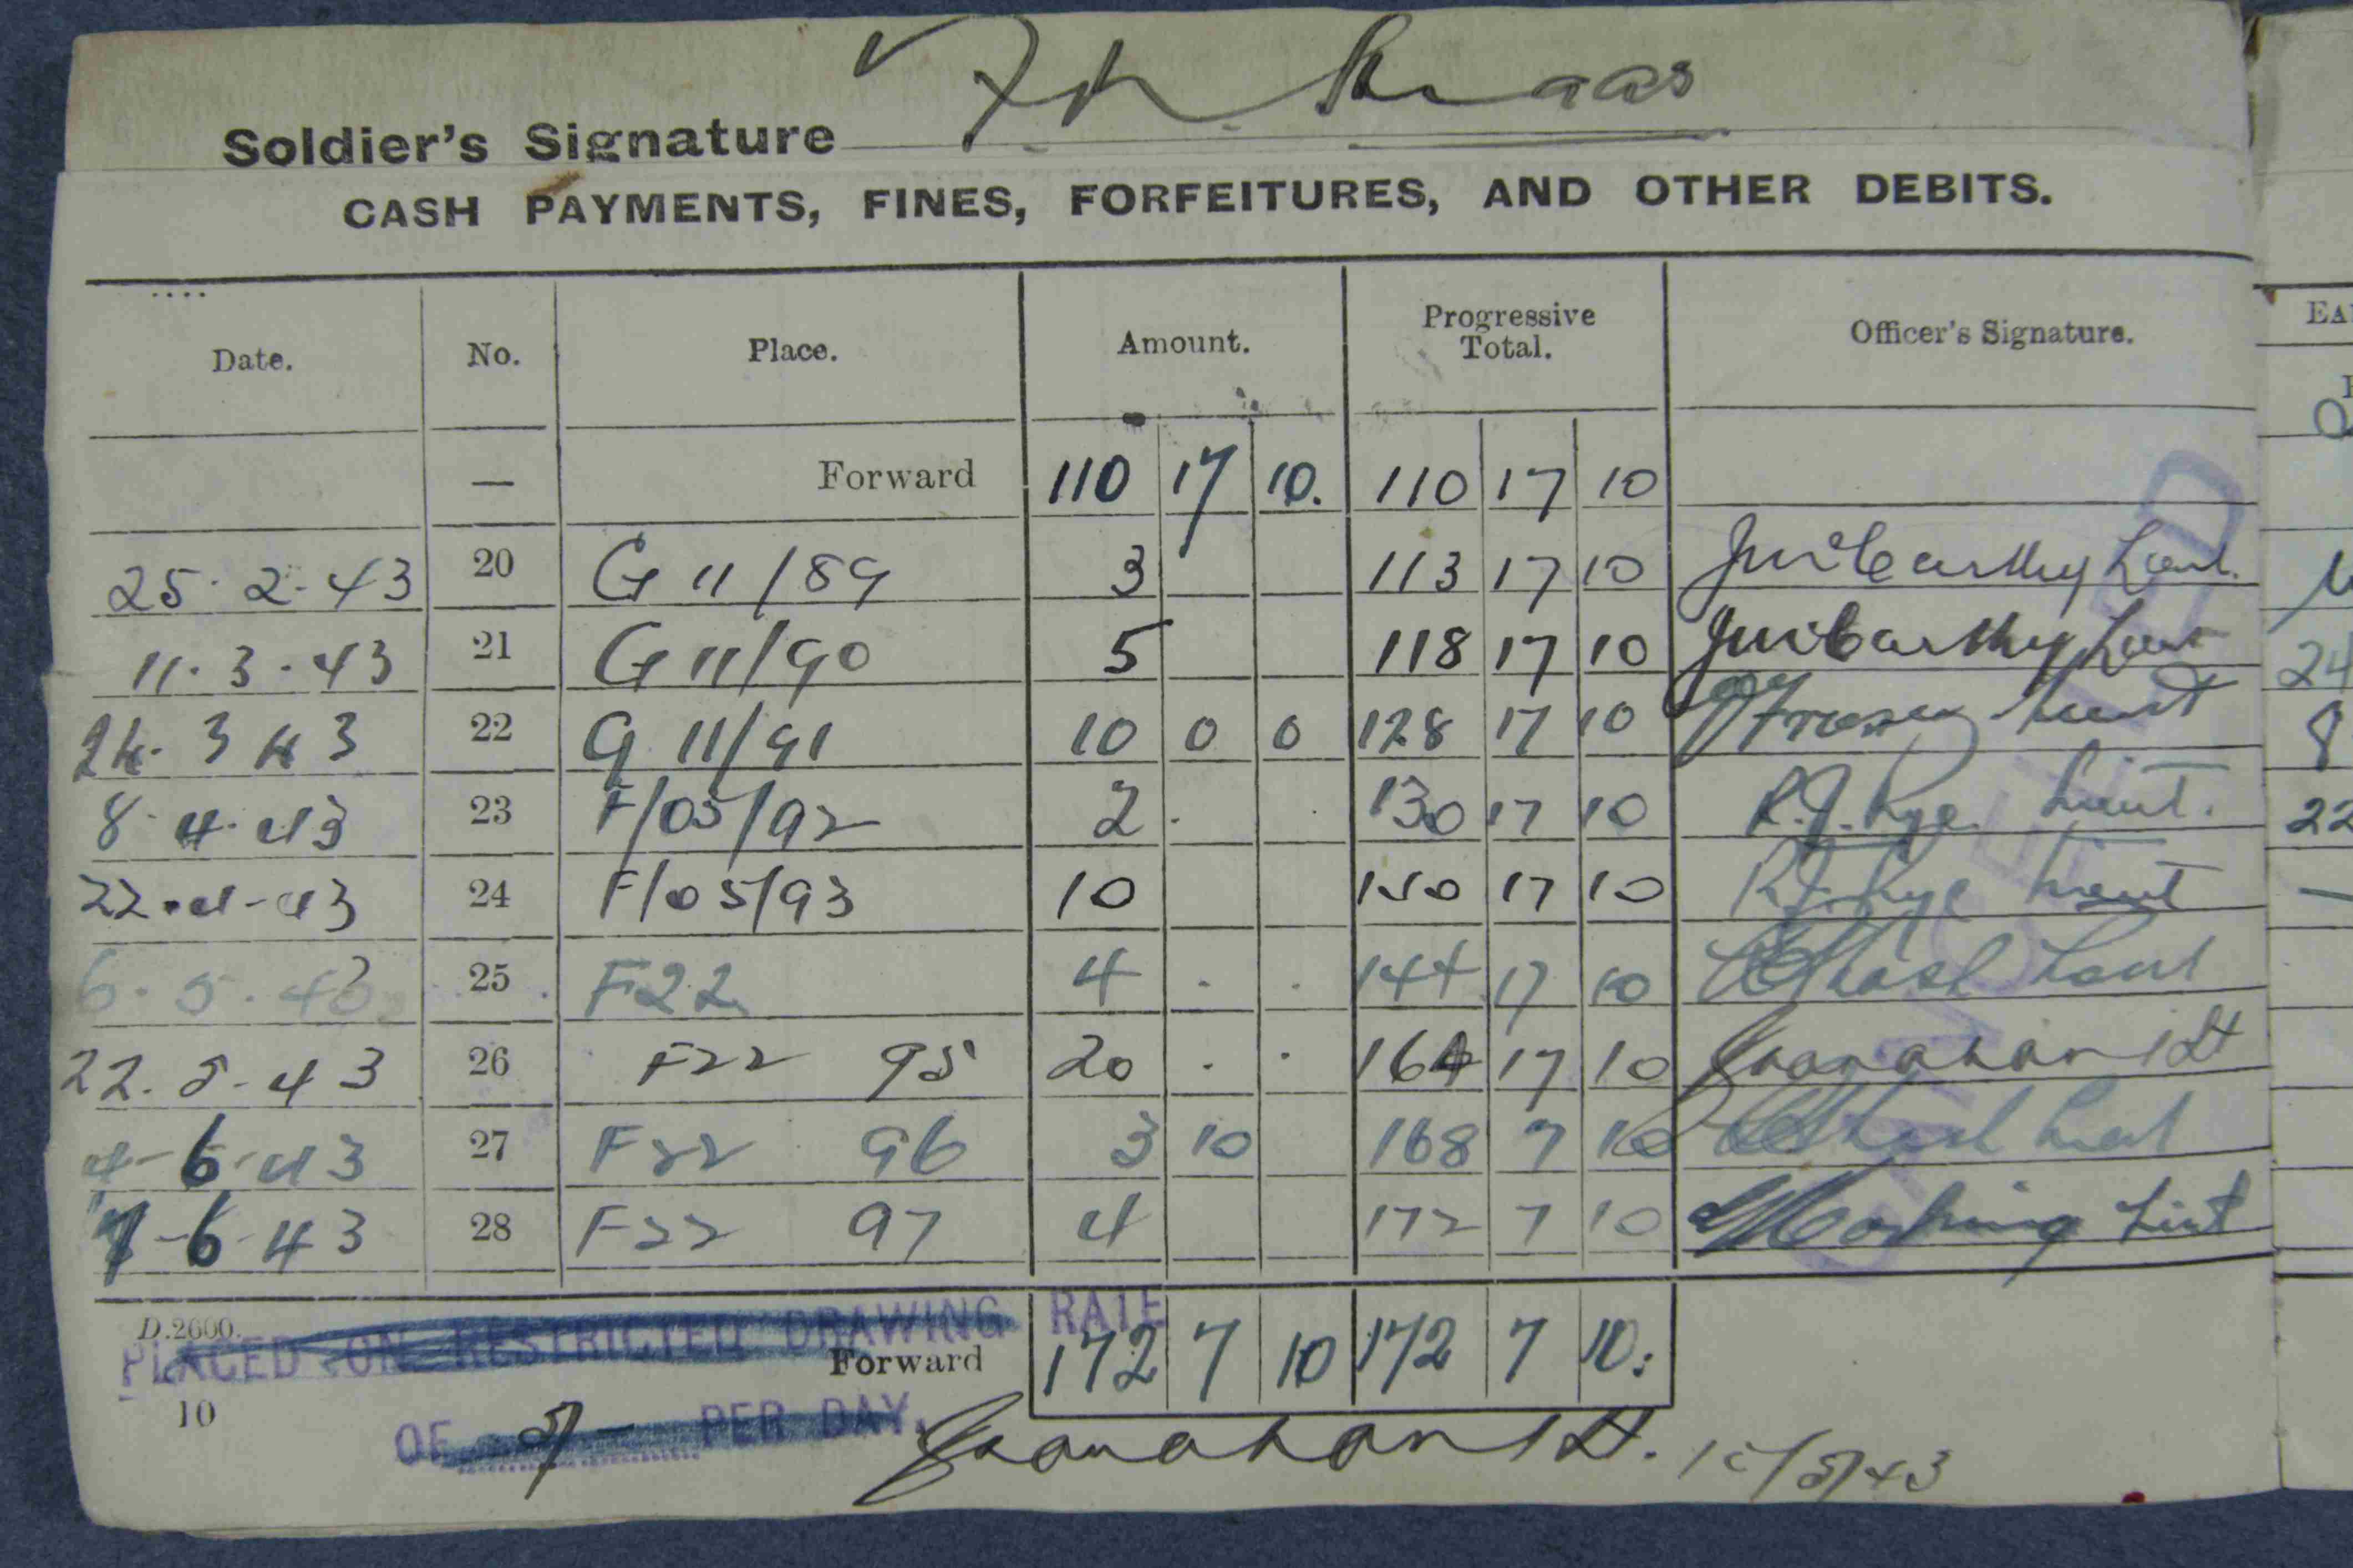 Soldier's Signature
CASH PAYMENTS, FINES, FORFEITURES, AND OTHER DEBITS.
Date. No. Place. Amount. Progressive Total. Officer's Signature.
— Forward 110 17 10. 110 17 10
25.2.43 20 G 11/89 3 113 17 10 Lieut.
11.3.43 21 G 11/90 5 118 17 10 Lieut
24.3 43 22 G 11/91 10 0 0 128 17 10 Lieut
8.4.43 23 F/05/92 2 . . 130 17 10 R.J. Rye Lieut.
22.4-43 24 F/05/93 10 140 17 10 R.J. Rye Lieut
6.5.43 25 F22 4 . . 144 17 10 Lieut
22.5.43 26 F22 95 20 . . 164 17 10 Lt
4-6-43 27 F22 96 3 10 168 7 10 Lieut
7-6-43 28 F22 97 4 172 7 10 Lieut
D.2600.
PLACED ON RESTRICTED DRAWING RATE
Forward 172 7 10 172 7 10.
10
OF 5/- PER DAY.
Lt.
EA
24
8
22